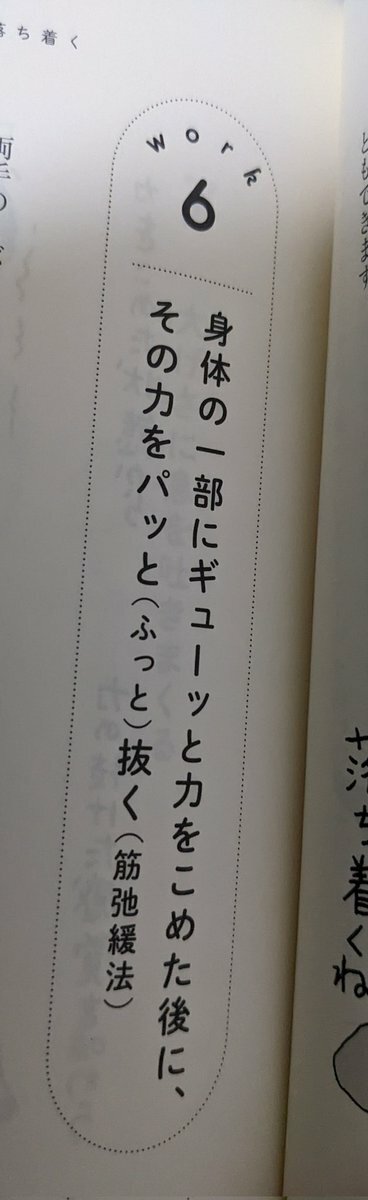 落ち着く
work
6
身体の一部にギューッと力をこめた後に、
その力をパッと(ふっと)抜く(筋弛緩法)
ともできます
落ち着くね